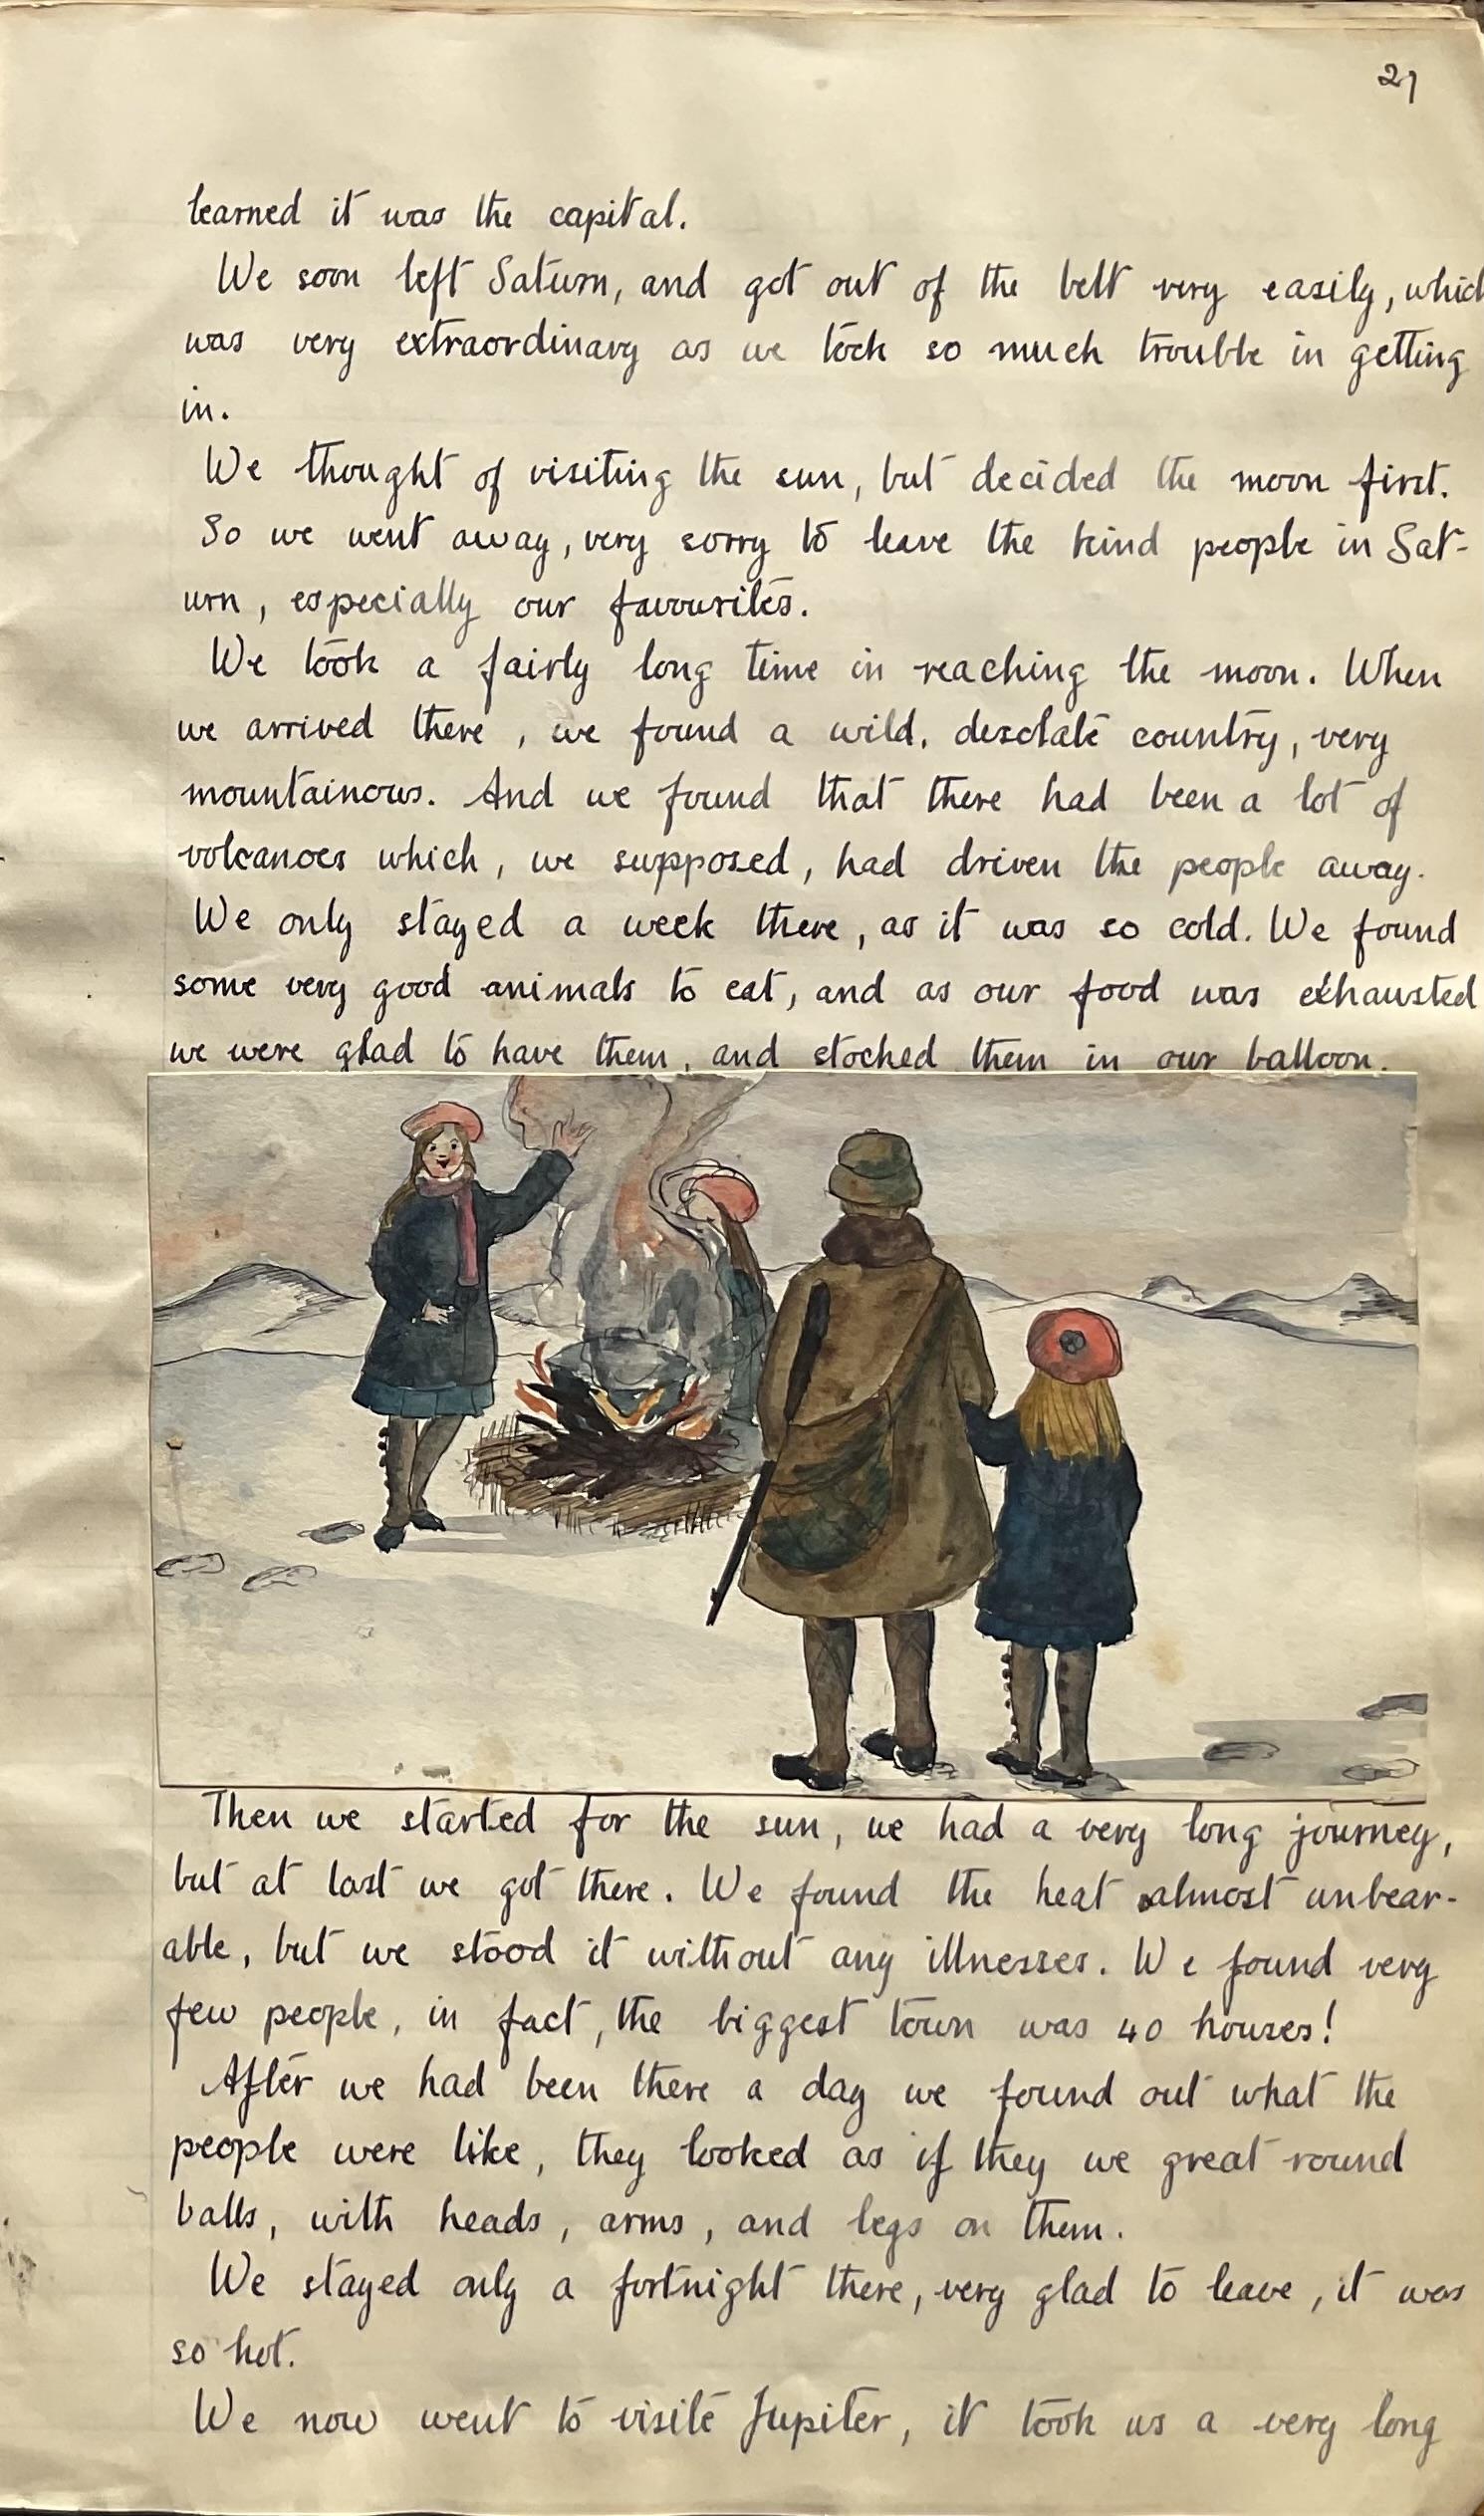 21
learned it was the capital.
We soon left Saturn, and got out of the belt very easily, which
was very extraordinary as we took so much trouble in getting
in.
We thought of visiting the sun, but decided the moon first.
So we went away, very sorry to leave the kind people in Sat-
urn, especially our favourites.
We took a fairly long time in reaching the moon. When
we arrived there, we found a wild, desolate country, very
mountainous. And we found that there had been a lot of
volcanoes which, we supposed, had driven the people away.
We only stayed a week there, as it was so cold. We found
some very good animals to eat, and as our food was exhausted
we were glad to have them, and stocked them in our balloon.
Then we started for the sun, we had a very long journey,
but at last we got there. We found the heat almost unbear-
able, but we stood it without any illnesses. We found very
few people, in fact, the biggest town was 40 houses!
After we had been there a day we found out what the
people were like, they looked as if they we great round
balls, with heads, arms, and legs on them.
We stayed only a fortnight there, very glad to leave, it was
so hot.
We now went to visite Jupiter, it took us a very long